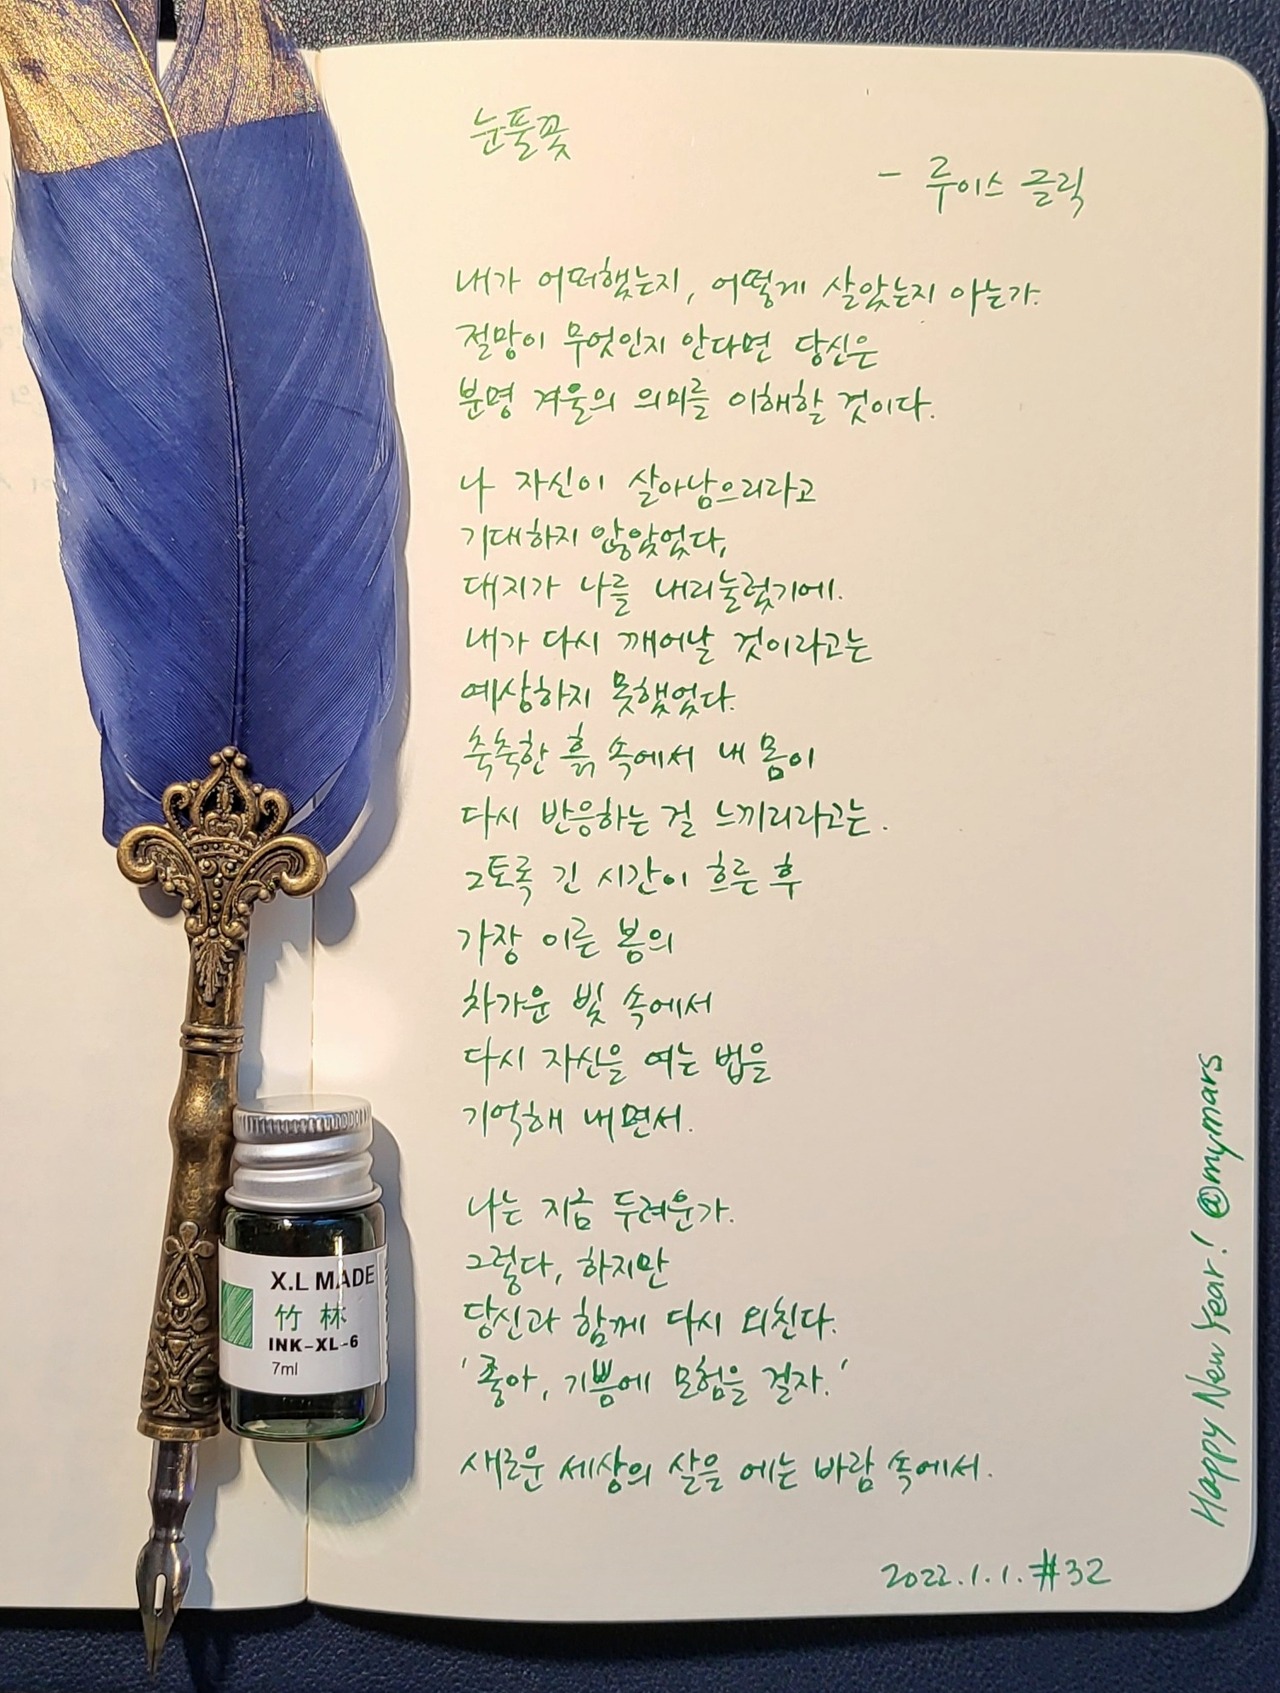 눈풀꽃
- 루이스 글릭
내가 어떠했는지, 어떻게 살았는지 아는가.
절망이 무엇인지 안다면 당신은
분명 겨울의 의미를 이해할 것이다.
나 자신이 살아남으리라고
기대하지 않았었다,
대지가 나를 내리눌렀기에.
내가 다시 깨어날 것이라고는
예상하지 못했었다.
축축한 흙 속에서 내 몸이
다시 반응하는 걸 느끼리라고는.
그토록 긴 시간이 흐른 후
가장 이른 봄의
차가운 빛 속에서
다시 자신을 여는 법을
기억해 내면서.
나는 지금 두려운가.
그렇다, 하지만
당신과 함께 다시 외친다.
'좋아, 기쁨에 모험을 걸자.'
새로운 세상의 살을 에는 바람 속에서.
2022.1.1. #32
Happy New Year! @mymars
X.L MADE
竹林
INK-XL-6
7ml